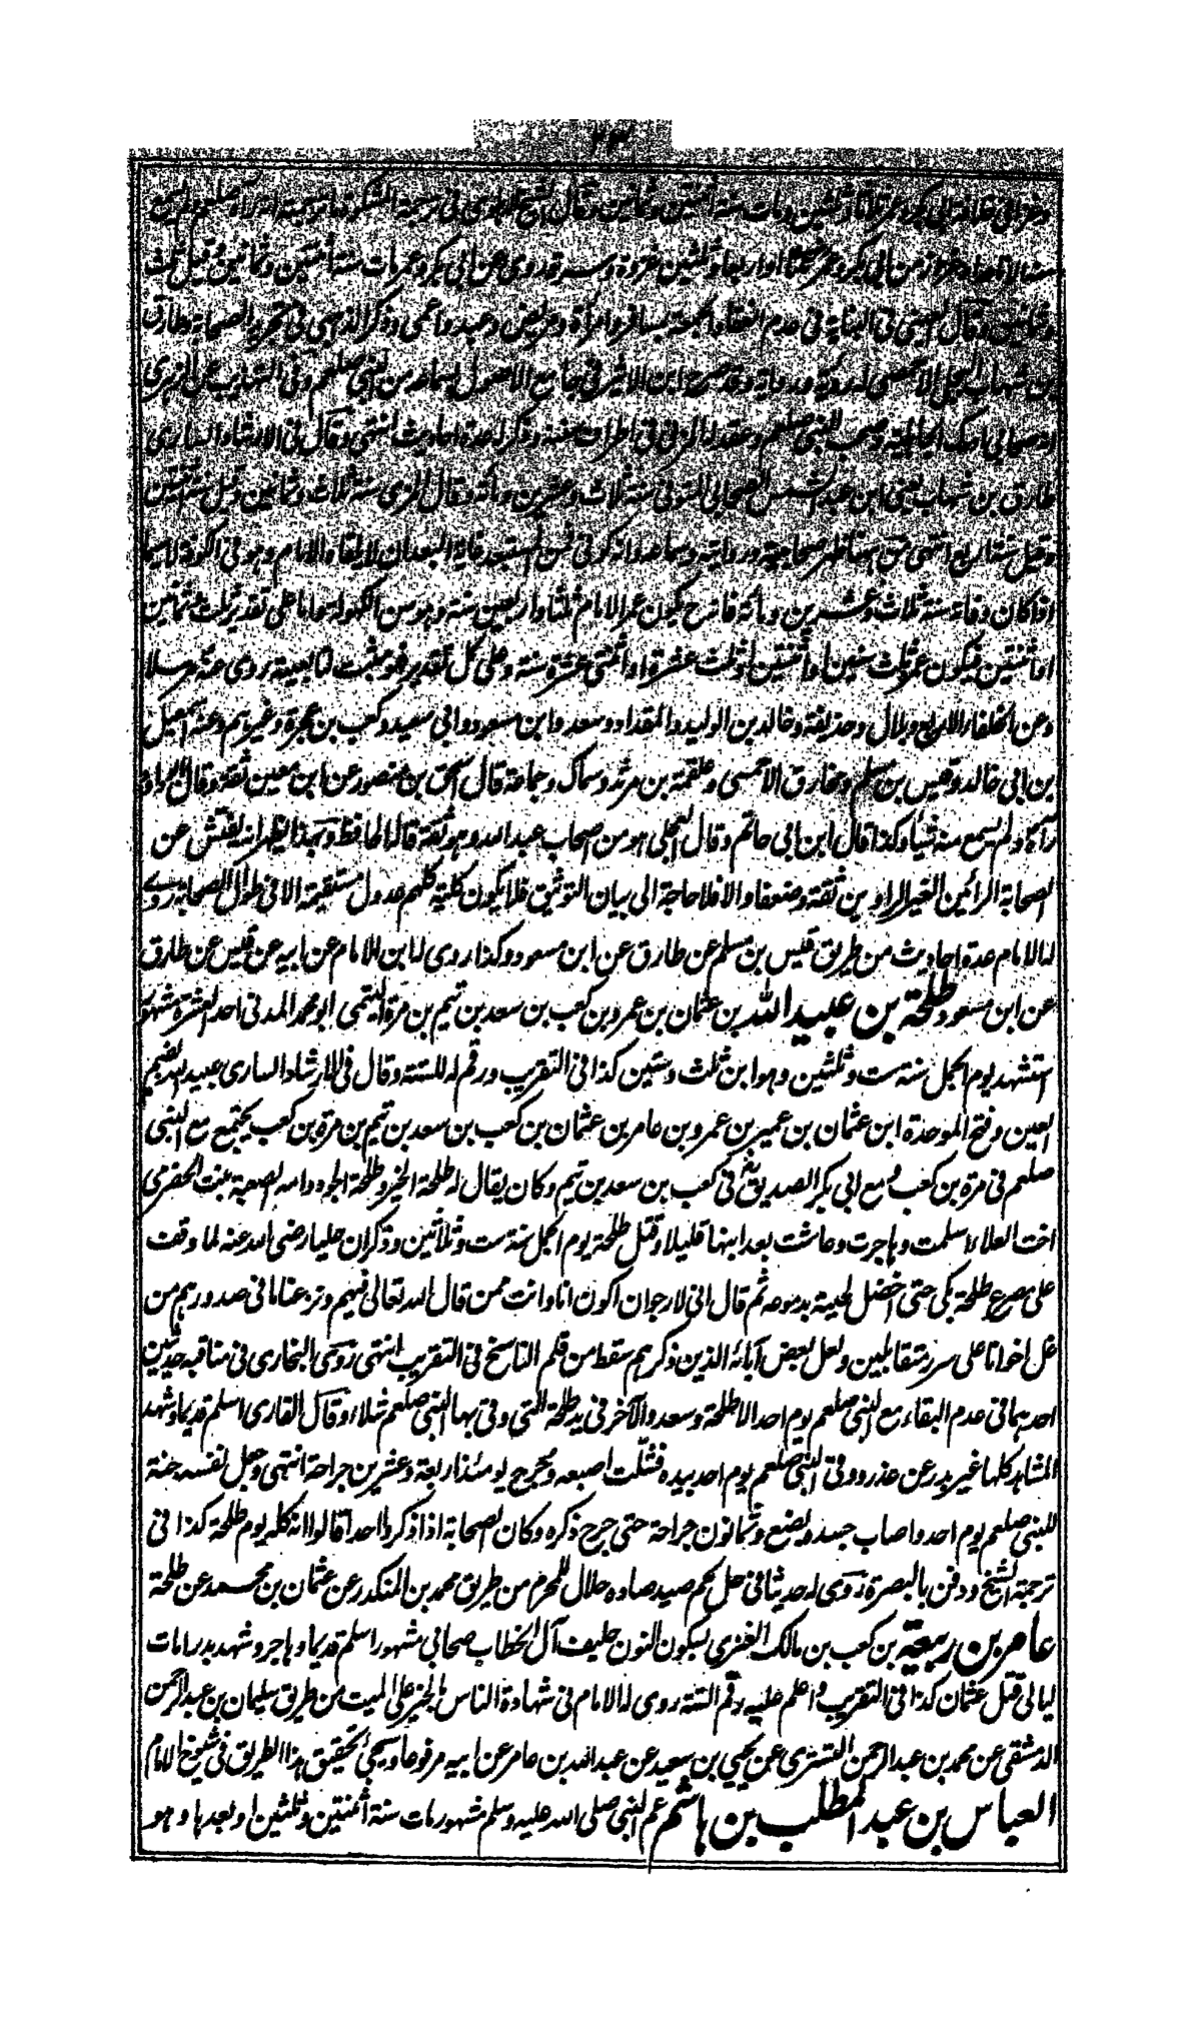 وغزا في خلافة ابي بكر وعمر ثلاثا وثلثين ومات سنة اثنتين وثمانين وقال الشيخ الدهلوي في
سنة اثنتين وثمانين وقيل ثلث
وثمانين وقال العيني في البناية في عدم انعقاد الجمعة بمسافر وامرأة ومريض وعبد واعمى وذكر الذهبي في تجريد الصحابة طارق
بن شهاب البجلي الاحمسي له رؤية ورواية وقد صرح ابن الاثير في جامع الاصول بسماعه من النبي صلعم وفي التهذيب عن الزهري
انه صحابي ادرك الجاهلية وصحب النبي صلعم وعقد له المزي في اطرافه مسندا وذكر له عدة احاديث انتهى وقال في الارشاد الساري
طارق بن شهاب يعني ابن عبد الشمس الصحابي المتوفى سنة ثلاث وعشرين ومائة وقال المزي سنة ثلاث وثمانين وقيل سنة اثنتين
وقيل سنة اربع انتهى فمن ههنا ظهر صحابيته وروايته وسماعه وانه كوفي فمن المستبعد غاية البعد ان لا يلقاه الامام وهو في الكوفة لا سيما
اذا كان وفاته سنة ثلاث وعشرين ومائة فانه ح يكون عمر الامام ثلثا واربعين سنة وهو من الكهولة واما على تقدير ثلث وثمانين
او اثنتين فيكون عمره ثلث سنين او اثنتين او ثلث عشرة او اثنتي عشرة سنة وعلى كل تقدير فهو مثبت لتابعيته روى عنه مرسلا
وعن الخلفاء الاربع وبلال وحذيفة وخالد بن الوليد والمقداد وسعد وابن مسعود وابي سعيد وكعب بن عجرة وغيرهم وعنه اسمعيل
بن ابي خالد وقيس بن مسلم ومخارق الاحمسي وعلقمة بن مرثد وسماك وجماعة قال اسحق بن منصور عن ابن معين ثقة وقال ابو داود
رآه ولم يسمع منه شيئا وكذا قال ابن ابي حاتم وقال العجلي هو من اصحاب عبد الله وهو ثقة قاله الحافظ وبهذا ظهر انه يفتش عن
الصحابة الرائين الغير الراوين ثقة وضعفا والا فلا حاجة الى بيان التوثيق فلا يكون كلية كلهم عدول مستقيمة الا في طوال الصحابة روى
له الامام عدة احاديث من طريق قيس بن مسلم عن طارق عن ابن مسعود وكذا روى له ابن الامام عن ابيه عن قيس عن طارق
عن ابن مسعود طلحة بن عبيد الله بن عثمان بن عمرو بن كعب بن سعد بن تيم بن مرة التيمي ابو محمد المدني احد العشرة مشهور
استشهد يوم الجمل سنة ست وثلثين وهو ابن ثلث وستين كذا في التقريب ورقم له للستة وقال في الارشاد الساري عبيد الله بضم
العين وفتح الموحدة ابن عثمان بن عمير بن عمرو بن عامر بن عثمان بن كعب بن سعد بن تيم بن مرة بن كعب يجتمع مع النبي
صلعم في مرة بن كعب ومع ابي بكر الصديق في كعب بن سعد بن تيم وكان يقال له طلحة الخير وطلحة الجود وامه الصعبة بنت الحضرمي
اخت العلاء اسلمت وهاجرت وعاشت بعد ابنها قليلا وقتل طلحة يوم الجمل سنة ست وثلاثين وذكر ان عليا رضي الله عنه لما وقف
على مصرع طلحة بكى حتى اخضل لحيته بدموعه ثم قال اني لارجو ان اكون انا وانت ممن قال الله تعالى فيهم ونزعنا ما في صدورهم من
غل اخوانا على سرر متقابلين ولعل بعض آبائه الذين ذكرهم سقط من قلم الناسخ في التقريب انتهى روى البخاري في مناقبه حديثين
احدهما في عدم البقاء مع النبي صلعم يوم احد الا طلحة وسعد والآخر في يد طلحة التي وقى بها النبي صلعم شلاء وقال القاري اسلم قديما وشهد
المشاهد كلها غير بدر عن عذر ووقى النبي صلعم يوم احد بيده فشلت اصبعه وجرح يومئذ اربعة وعشرين جراحة انتهى وجعل نفسه جنة
للنبي صلعم يوم احد واصاب جسده بضع وثمانون جراحة حتى جرح ذكره وكان الصحابة اذا ذكروا احدا قالوا انه كله يوم طلحة كذا في
ترجمة الشيخ ودفن بالبصرة روى له حديثا في حل لحم صيد صاده حلال للمحرم من طريق محمد بن المنكدر عن عثمان بن محمد عن طلحة
عامر بن ربيعة بن كعب بن مالك العنزي بسكون النون حليف آل الخطاب صحابي مشهور اسلم قديما وهاجر وشهد بدرا مات
ليالي قتل عثمان كذا في التقريب واعلم عليه رقم الستة روى له الامام في شهادة الناس بالخير على الميت من طريق سليمان بن عبد الرحمن
الدمشقي عن محمد بن عبد الرحمن القشيري عن يحيى بن سعيد عن عبد الله بن عامر عن ابيه مرفوعا وسيجئ تحقيق هذا الطريق في شيوخ الامام
العباس بن عبد المطلب بن هاشم عم النبي صلى الله عليه وسلم مشهور مات سنة اثنتين وثلثين او بعدها وهو